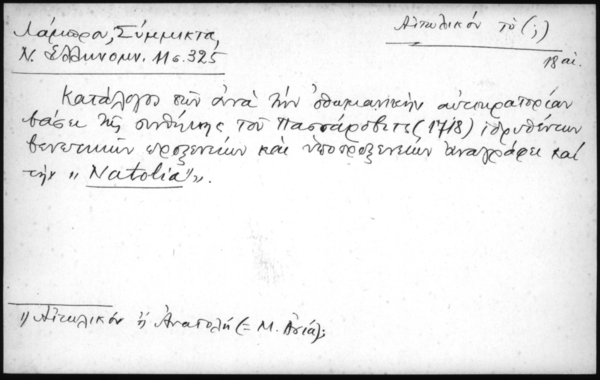 Λάμπρου, Σύμμικτα,
Ν. Ἑλληνομν. 11 σ. 325
Αἰτωλικόν τὸ (;)
18 αἰ.
Κατάλογος τῶν ἀνὰ τὴν ὀθωμανικὴν αὐτοκρατορίαν
βάσει τῆς συνθήκης τοῦ Πασσάροβιτς (1718) ἱδρυθέντων
βενετικῶν προξενείων καὶ ὑποπροξενείων ἀναγράφει καὶ
τὴν „Natolia¹⁾".
1) Αἰτωλικόν ἢ Ἀνατολή (= Μ. Ἀσία);